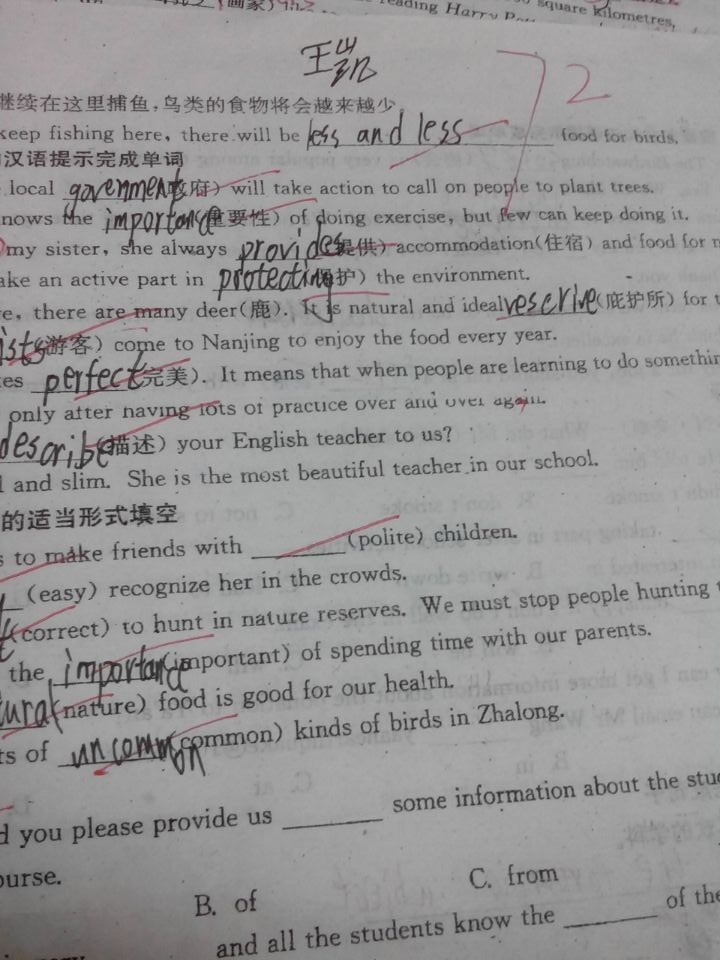 (画家)
reading Harry
square kilometres,
王凯
72
继续在这里捕鱼,鸟类的食物将会越来越少
keep fishing here, there will be less and less food for birds.
汉语提示完成单词
local govenment(政府) will take action to call on people to plant trees.
nows the importance(重要性) of doing exercise, but few can keep doing it.
my sister, she always provides(提供) accommodation(住宿) and food for
ake an active part in protecting(保护) the environment.
re, there are many deer(鹿). It is natural and ideal rescrive(庇护所) for
ists(游客) come to Nanjing to enjoy the food every year.
es perfect(完美). It means that when people are learning to do somethin
only after having lots of practice over and over again.
describe(描述) your English teacher to us?
l and slim. She is the most beautiful teacher in our school.
的适当形式填空
s to make friends with ______ (polite) children.
(easy) recognize her in the crowds.
(correct) to hunt in nature reserves. We must stop people hunting
the importance(important) of spending time with our parents.
tural(nature) food is good for our health.
ts of uncommon(common) kinds of birds in Zhalong.
d you please provide us ______ some information about the stu
ourse.
B. of
C. from
and all the students know the ______ of the